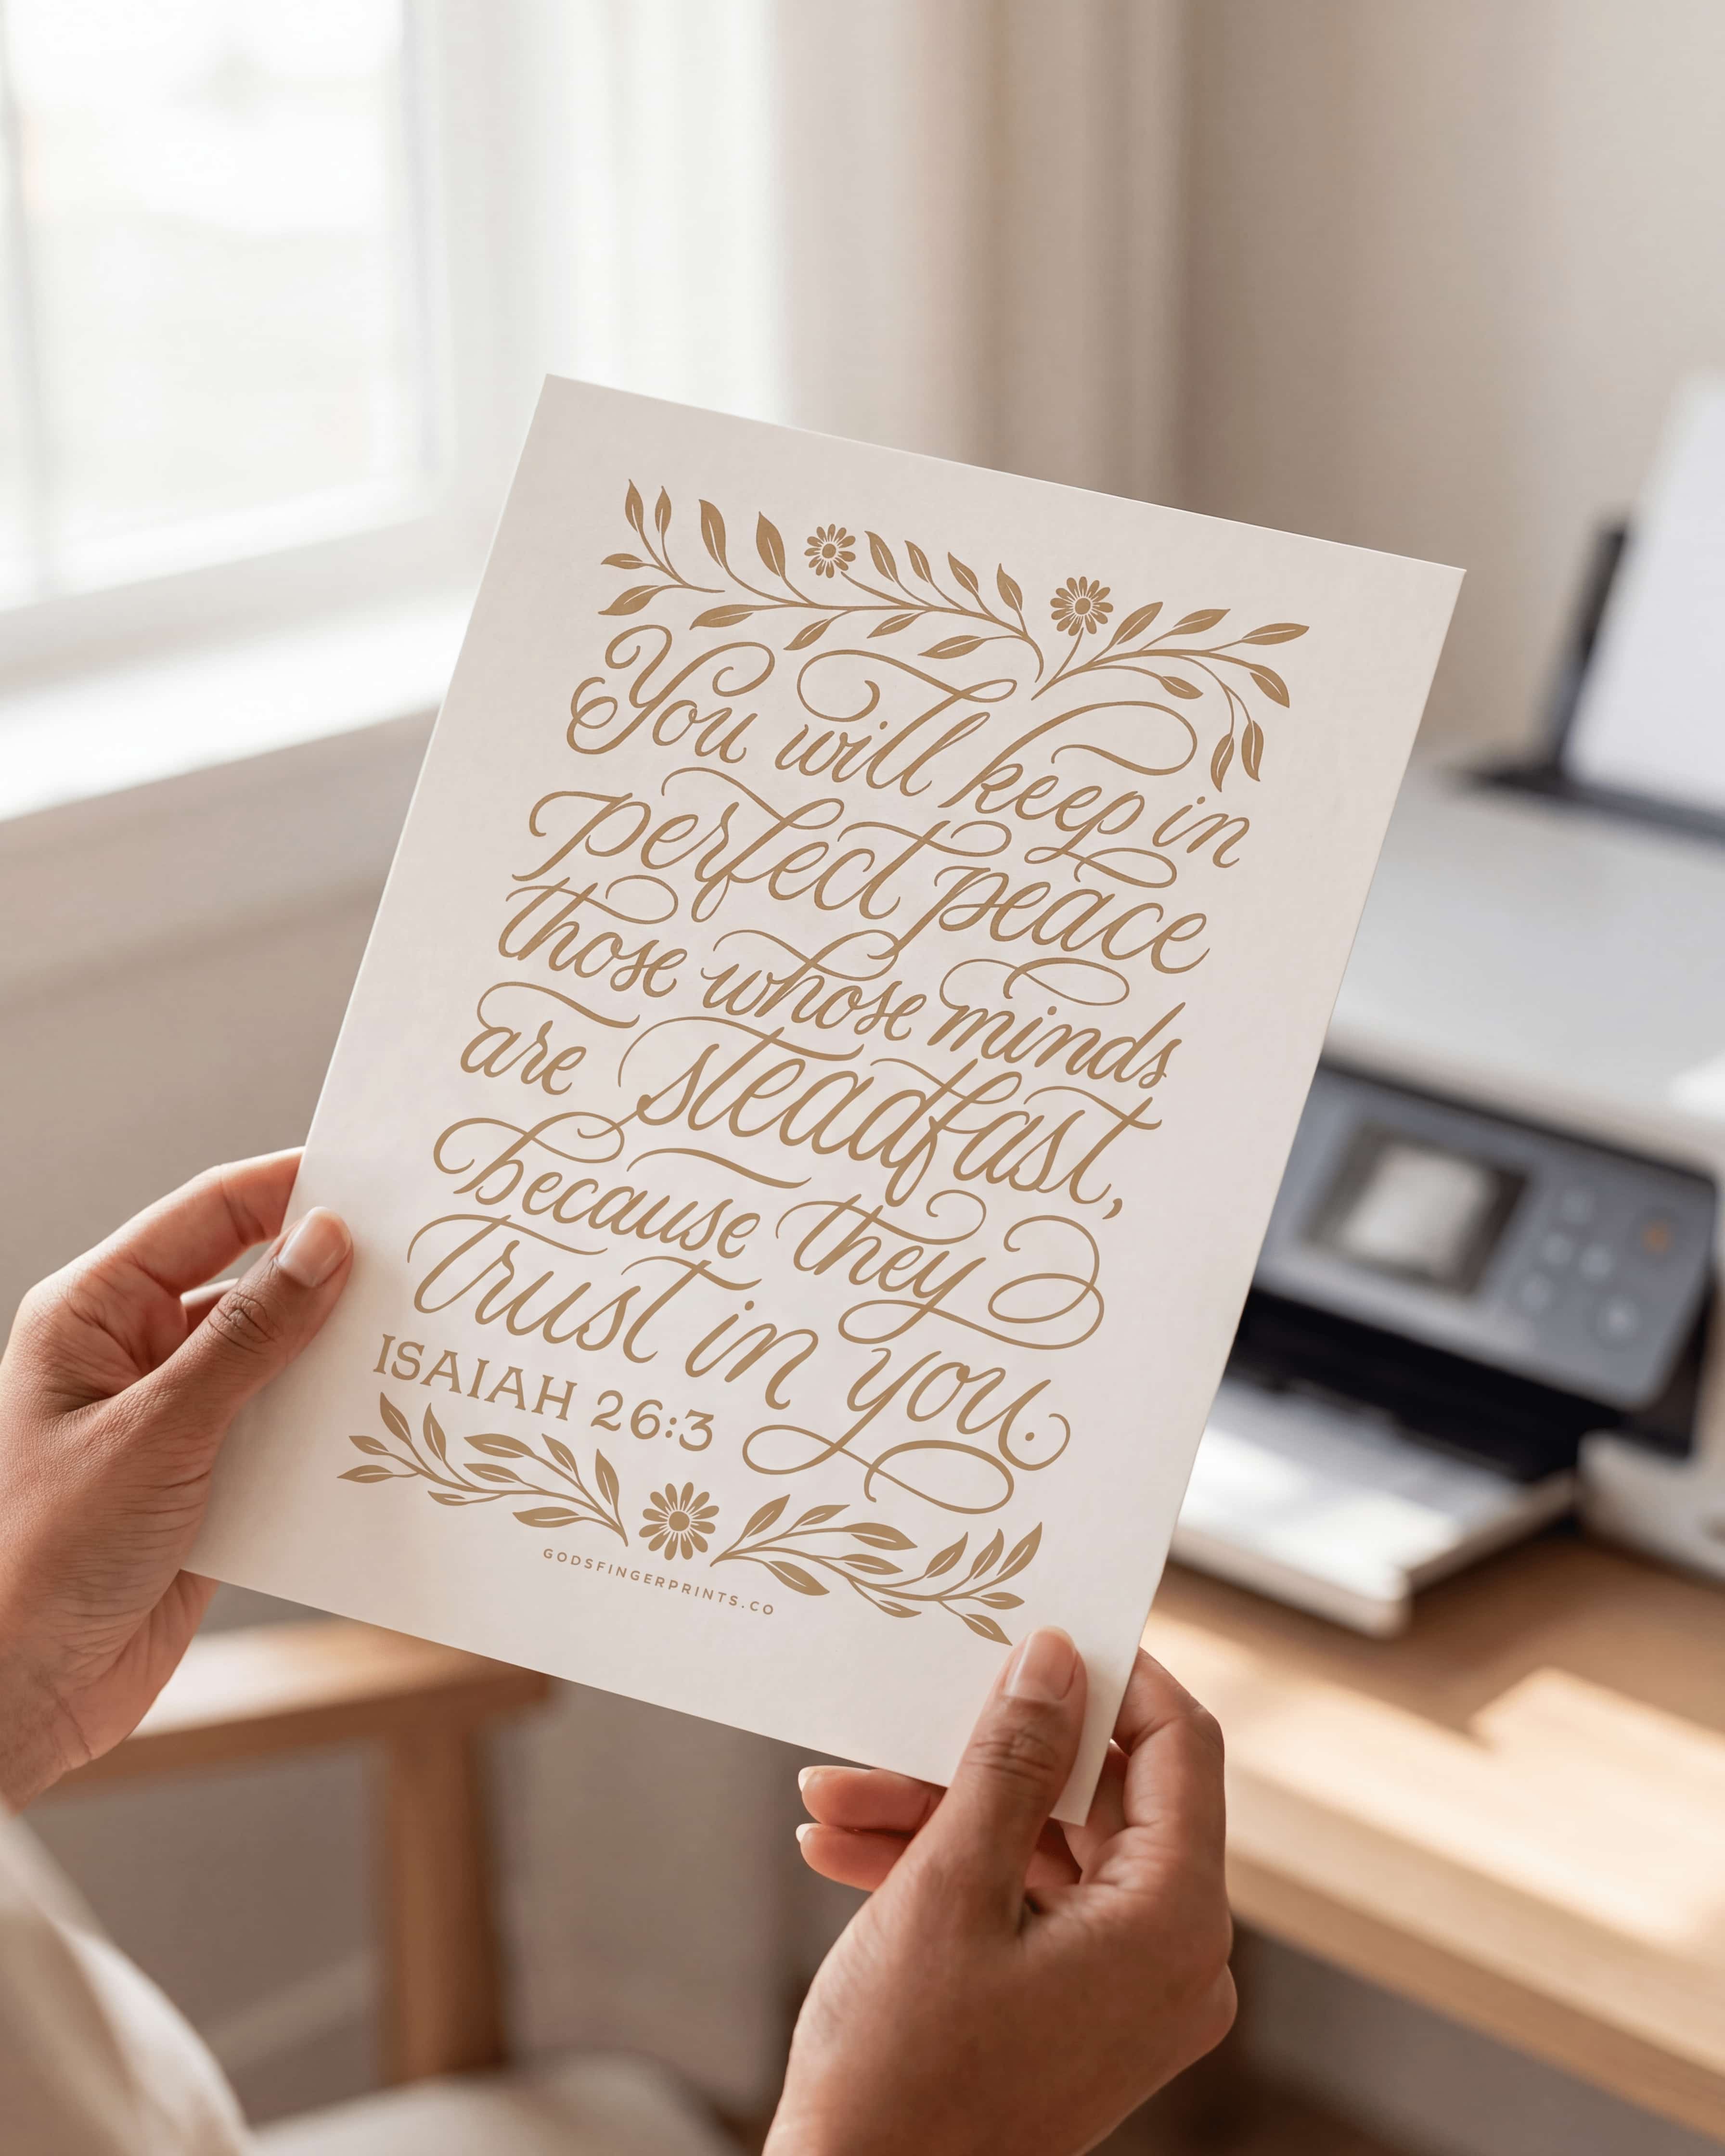 You will keep in
perfect peace
those whose minds
are steadfast,
because they
trust in you.
ISAIAH 26:3
GODSFINGERPRINTS.CO